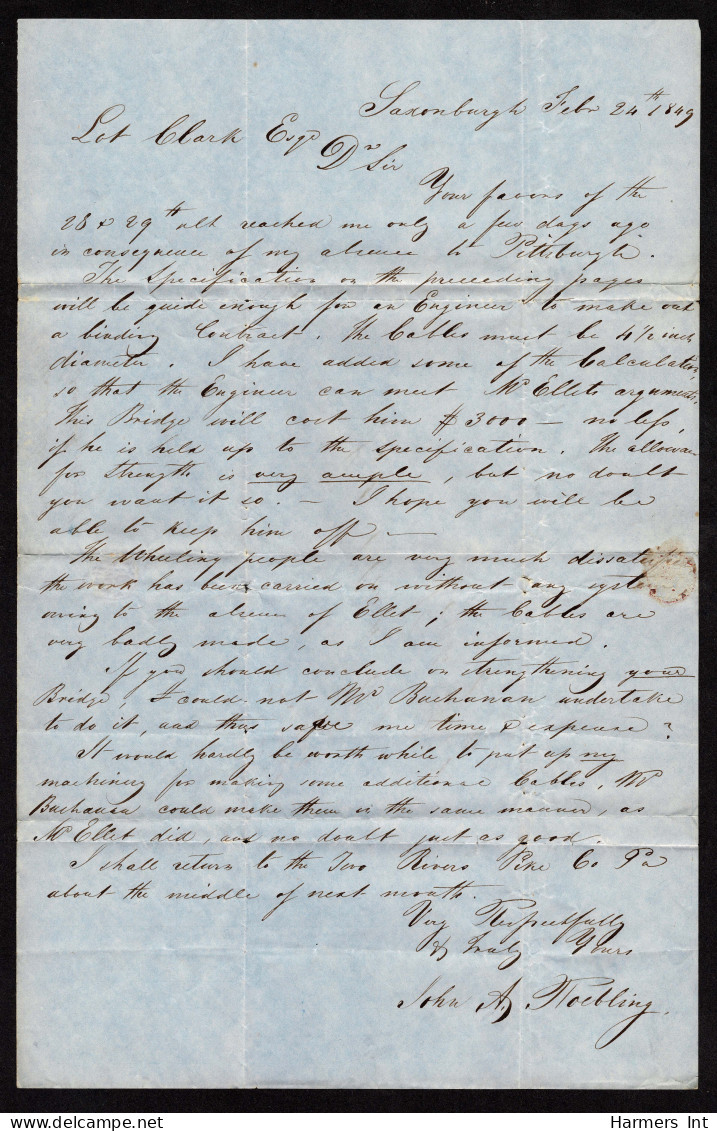 Saxonburgh Febr 24th 1849
Lot Clark Esqr
Dr Sir
Your favors of the
28 & 29th ult reached me only a few days ago
in consequence of my absence to Pittsburgh.
The Specification on the preceeding pages
will be guide enough for an Engineer to make out
a binding Contract. The Cables must be 4 1/2 inch
diameter. I have added some of the Calculation,
so that the Engineer can meet Mr Ellets arguments.
This Bridge will cost him $3000 — no less,
if he is held up to the specification. The allowan
for strength is very ample, but no doubt
you want it so. — I hope you will be
able to keep him off —
The Wheeling people are very much dissatisf
the work has been carried on without any syste
owing to the absence of Ellet; the Cables are
very badly made, as I am informed.
If you should conclude on strengthening your
Bridge, could not Mr Buchanan undertake
to do it, and thus save me time & expense?
It would hardly be worth while to put up my
machinery for making some additional Cables, Mr
Buchanan could make them in the same manner, as
Mr Ellet did, and no doubt just as good.
I shall return to the Two Rivers Pike Co Pa
about the middle of next month.
Very Respectfully
& truly Yours
John A. Roebling.
Harmers Int